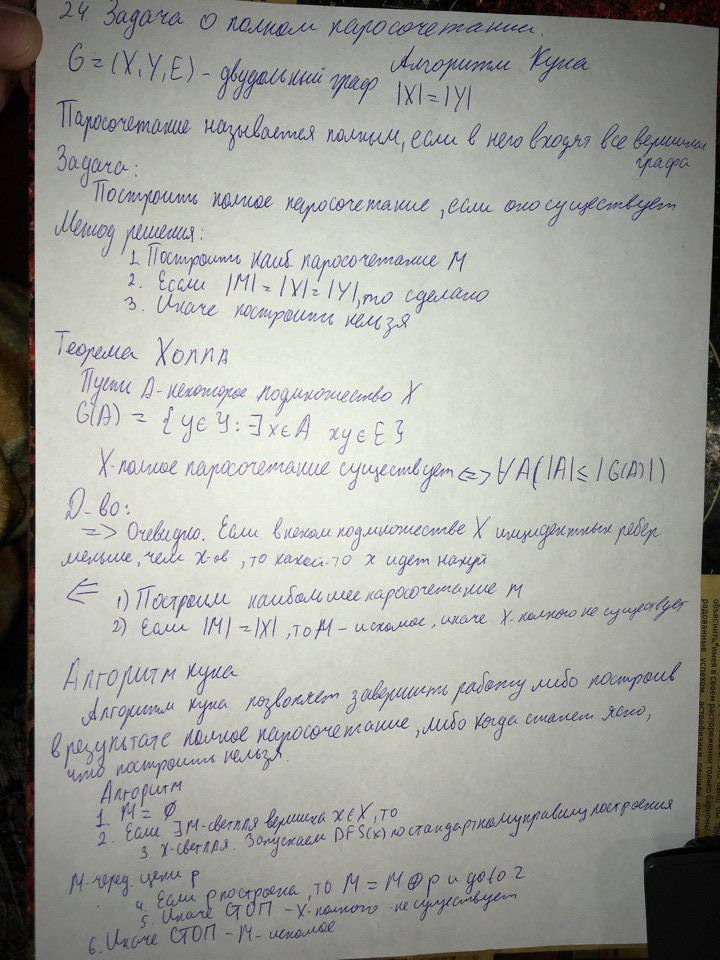 24. Задача о полном паросочетании.
Алгоритм Куна
G = (X, Y, E) - двудольный граф |X| = |Y|
Паросочетание называется полным, если в него входят все вершины графа
Задача:
Построить полное паросочетание, если оно существует
Метод решения:
1. Построить наиб паросочетание M
2. Если |M| = |X| = |Y|, то сделано
3. Иначе построить нельзя
Теорема Холла
Пусть A - некоторое подмножество X
G(A) = { y∈Y : ∃x∈A xy∈E }
X-полное паросочетание существует <=> ∀A(|A| ≤ |G(A)|)
Д-во:
=> Очевидно. Если в неком подмножестве X инцидентных ребер
меньше, чем x-ов, то какой-то x идет нахуй
<= 1) Построим наибольшее паросочетание M
2) Если |M| = |X|, то M - искомое, иначе X-полного не существует
Алгоритм куна
Алгоритм куна позволяет завершить работу либо построив
в результате полное паросочетание, либо когда станет ясно,
что построить нельзя.
Алгоритм
1. M = ∅
2. Если ∃ M-светлая вершина x∈X, то
3. x-светлая. Запускаем DFS(x) по стандартному правилу построения
M-черед. цепи p
4. Если p построена, то M = M ⊕ p и go to 2
5. Иначе СТОП - X-полного не существует
6. Иначе СТОП - M - искомое